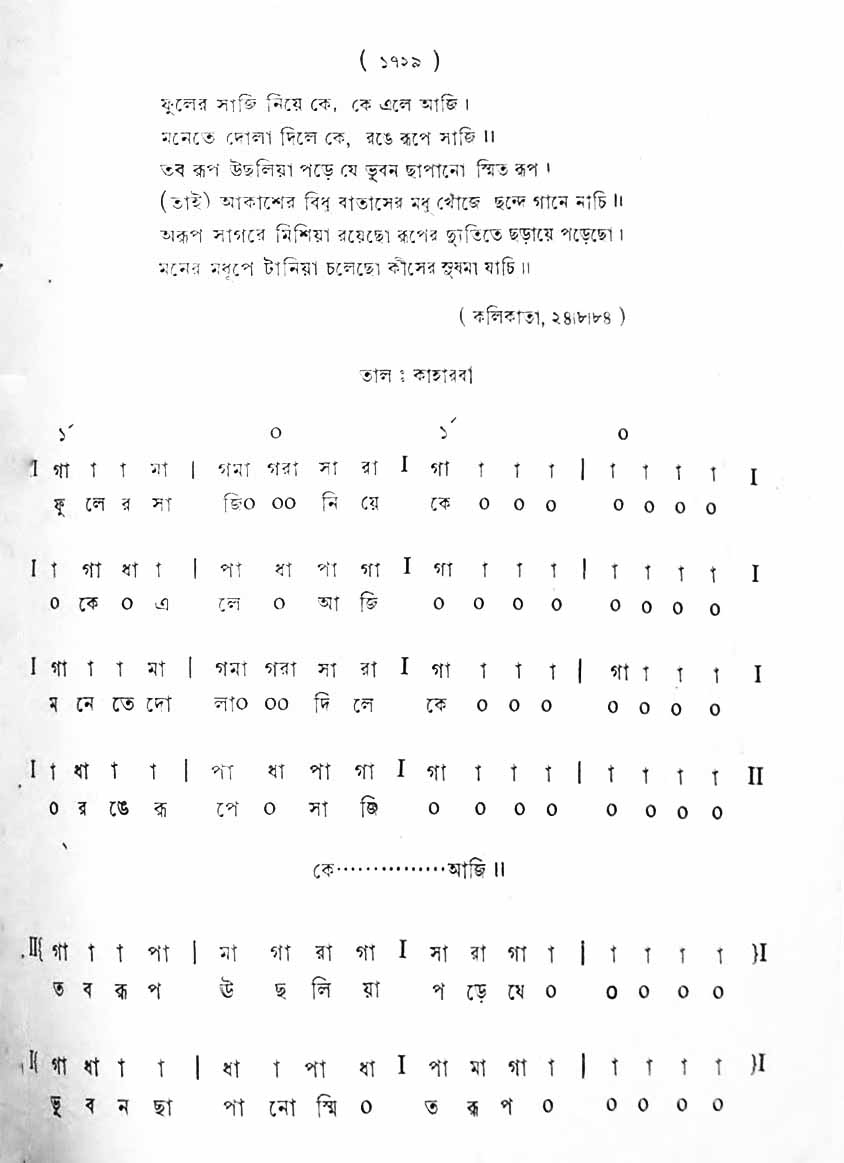 ( ১৭২৯ )
ফুলের সাজি নিয়ে কে, কে এলে আজি ।
মনেতে দোলা দিলে কে, রঙে রূপে সাজি ॥
তব রূপ উছলিয়া পড়ে যে ভুবন ছাপানো স্মিত রূপ ।
(তাই) আকাশের বিধু বাতাসের মধু খোঁজে ছন্দে গানে নাচি ॥
অরূপ সাগরে মিশিয়া রয়েছো রূপের দ্যুতিতে ছড়ায়ে পড়েছো ।
মনের মধুপে টানিয়া চলেছো কীসের সুষমা যাচি ॥
( কলিকাতা, ২৪।৮।৮৪ )
তাল : কাহারবা
১´ ০ ১´ ০
I গা া া মা | গমা গরা সা রা I গা া া া | া া া া I
ফু লে র সা জি০ ০০ নি য়ে কে ০ ০ ০ ০ ০ ০ ০
I া গা ধা া | পা ধা পা গা I গা া া া | া া া া I
০ কে ০ এ লে ০ আ জি ০ ০ ০ ০ ০ ০ ০ ০
I গা া া মা | গমা গরা সা রা I গা া া া | গা া া া I
ম নে তে দো লা০ ০০ দি লে কে ০ ০ ০ ০ ০ ০ ০
I া ধা া া | পা ধা পা গা I গা া া া | া া া া II
০ র ঙে রূ পে ০ সা জি ০ ০ ০ ০ ০ ০ ০ ০
কে················আজি ॥
II{ গা া া পা | মা গা রা গা I সা রা গা া | া া া া }I
ত ব রূ প উ ছ লি য়া প ড়ে যে ০ ০ ০ ০ ০
I{ গা ধা া া | ধা া পা ধা I পা মা গা া | া া া া }I
ভু ব ন ছা পা নো স্মি ০ ত রূ প ০ ০ ০ ০ ০